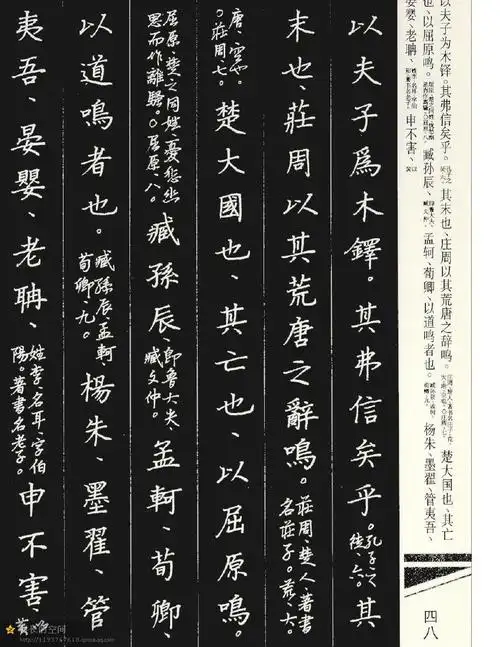 以夫子为木铎。其弗信矣乎。其末也、庄周以其荒唐之辞鸣。楚大国也、其亡
也、以屈原鸣。臧孙辰、孟轲、荀卿、以道鸣者也。杨朱、墨翟、管夷吾、
晏婴、老聃、申不害、
四八
以夫子爲木鐸。其弗信矣乎。孔子之徒、六。其
末也、莊周以其荒唐之辭鳴。莊周、楚人著書名莊子。荒、大。
唐、空也。莊周七。楚大國也、其亡也、以屈原鳴。
屈原、楚之同姓、憂愁幽思而作離騷。○屈原八。臧孫辰、即魯大夫臧文仲。孟軻、荀卿、
以道鳴者也。臧孫辰孟軻荀卿、九。楊朱、墨翟、管
夷吾、晏嬰、老聃、姓李名耳、字伯陽。著書名老子。申不害、
空间